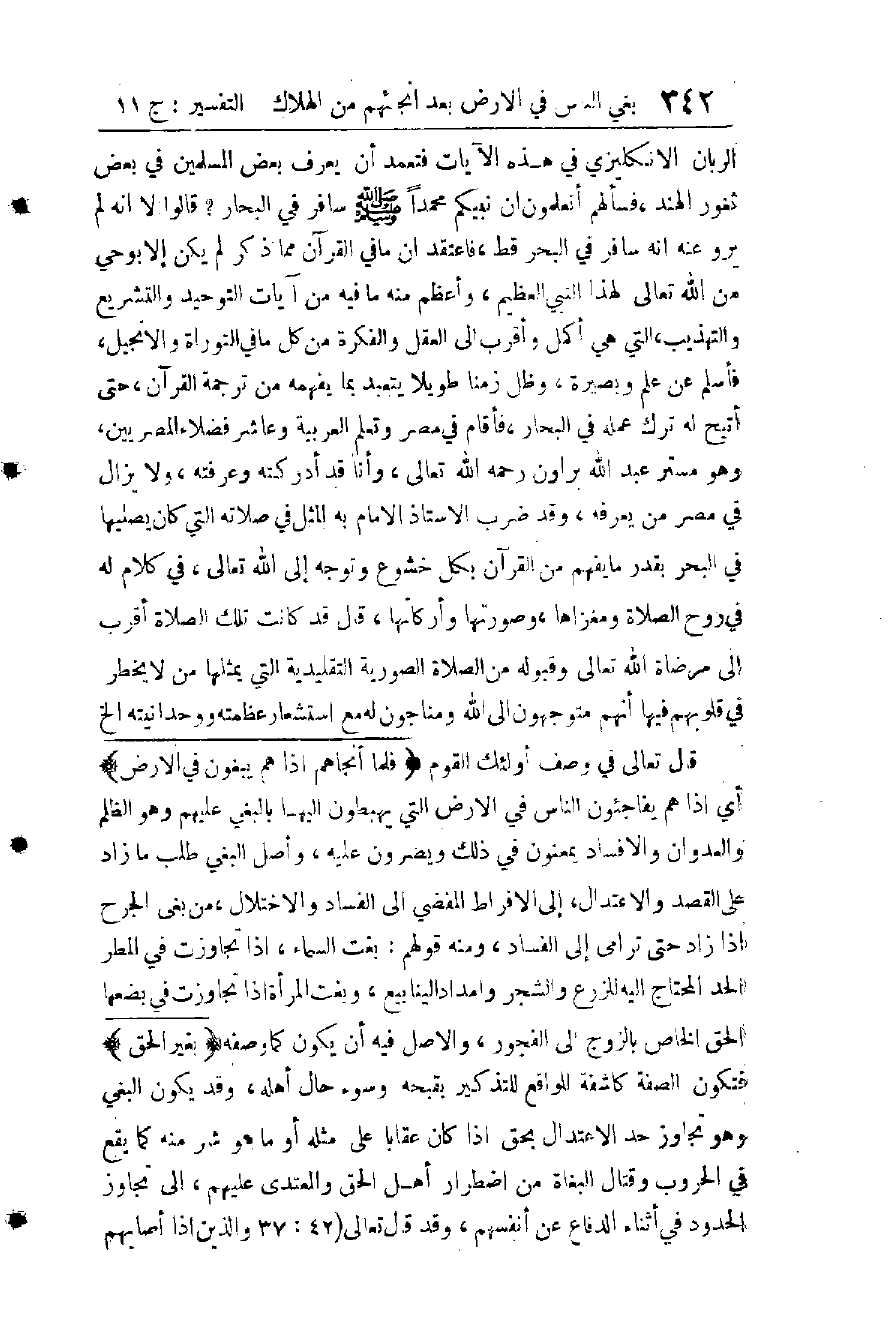 ٣٤٢ بغي الناس في الارض بعد أنجئهم من الهلاك التفسير : ج ١١
الربان الانكليزي في هذه الآيات فتعمد أن يعرف بعض المسلمين في بعض
ثغور الهند ، فسألهم أتعلمون ان نبيكم محمداً ﷺ سافر في البحار ؟ قالوا لا انه لم
يرو عنه انه سافر في البحر قط ، فاعتقد ان مافي القرآن مما ذكر لم يكن إلا بوحي
من الله تعالى لهذا النبي العظيم ، وأعظم منه ما فيه من آيات التوحيد والتشريع
والتهذيب، التي هي أكمل وأقرب الى العقل والفكرة من كل مافي التوراة والانجيل،
فأسلم عن علم وبصيرة ، وظل زمنا طويلا يتعبد بما يفهمه من ترجمة القرآن ، حتى
أتيح له ترك عمله في البحار ، فأقام في مصر وتعلم العربية وعاشر فضلاء المصريين،
وهو مستر عبد الله براون رحمه الله تعالى ، وأنا قد أدركته وعرفته ، ولا يزال
في مصر من يعرفه ، وقد ضرب الاستاذ الامام به المثل في صلاته التي كان يصليها
في البحر بقدر مايفهم من القرآن بكل خشوع وتوجه إلى الله تعالى ، في كلام له
في روح الصلاة ومغزاها ، وصورتها وأركانها ، قال قد كانت تلك الصلاة أقرب
الى مرضاة الله تعالى وقبوله من الصلاة الصورية التقليدية التي يمثلها من لا يخطر
في قلوبهم فيها أنهم متوجهون الى الله ومناجون له مع استشعار عظمته ووحدانيته الخ
قال تعالى في وصف أولئك القوم ﴿ فلما أنجاهم اذا هم يبغون في الارض ﴾
أي اذا هم يفاجئون الناس في الارض التي يهبطون اليها بالبغي عليهم وهو الظلم
والعدوان والافساد يمعنون في ذلك ويصرون عليه ، وأصل البغي طلب ما زاد
على القصد والاعتدال، إلى الافراط المفضي الى الفساد والاختلال ، من بغى الجرح
اذا زاد حتى ترامى إلى الفساد ، ومنه قولهم : بغت السماء ، اذا تجاوزت في المطر
الحد المحتاج اليه للزرع والشجر وامداد الينابيع ، وبغت المرأة اذا تجاوزت في بضعها
الحق الخاص بالزوج الى الفجور ، والاصل فيه أن يكون كما وصفه ﴿ بغير الحق ﴾
فتكون الصفة كاشفة للواقع للتذكير بقبحه وسوء حال أهله، وقد يكون البغي
وهو تجاوز حد الاعتدال بحق اذا كان عقابا على مثله أو ما هو شر منه كما يقع
في الحروب وقتال البغاة من اضطرار أهل الحق والمعتدى عليهم ، الى تجاوز
الحدود في أثناء الدفاع عن أنفسهم ، وقد قال تعالى (٤٢ : ٣٧ والذين اذا أصابهم